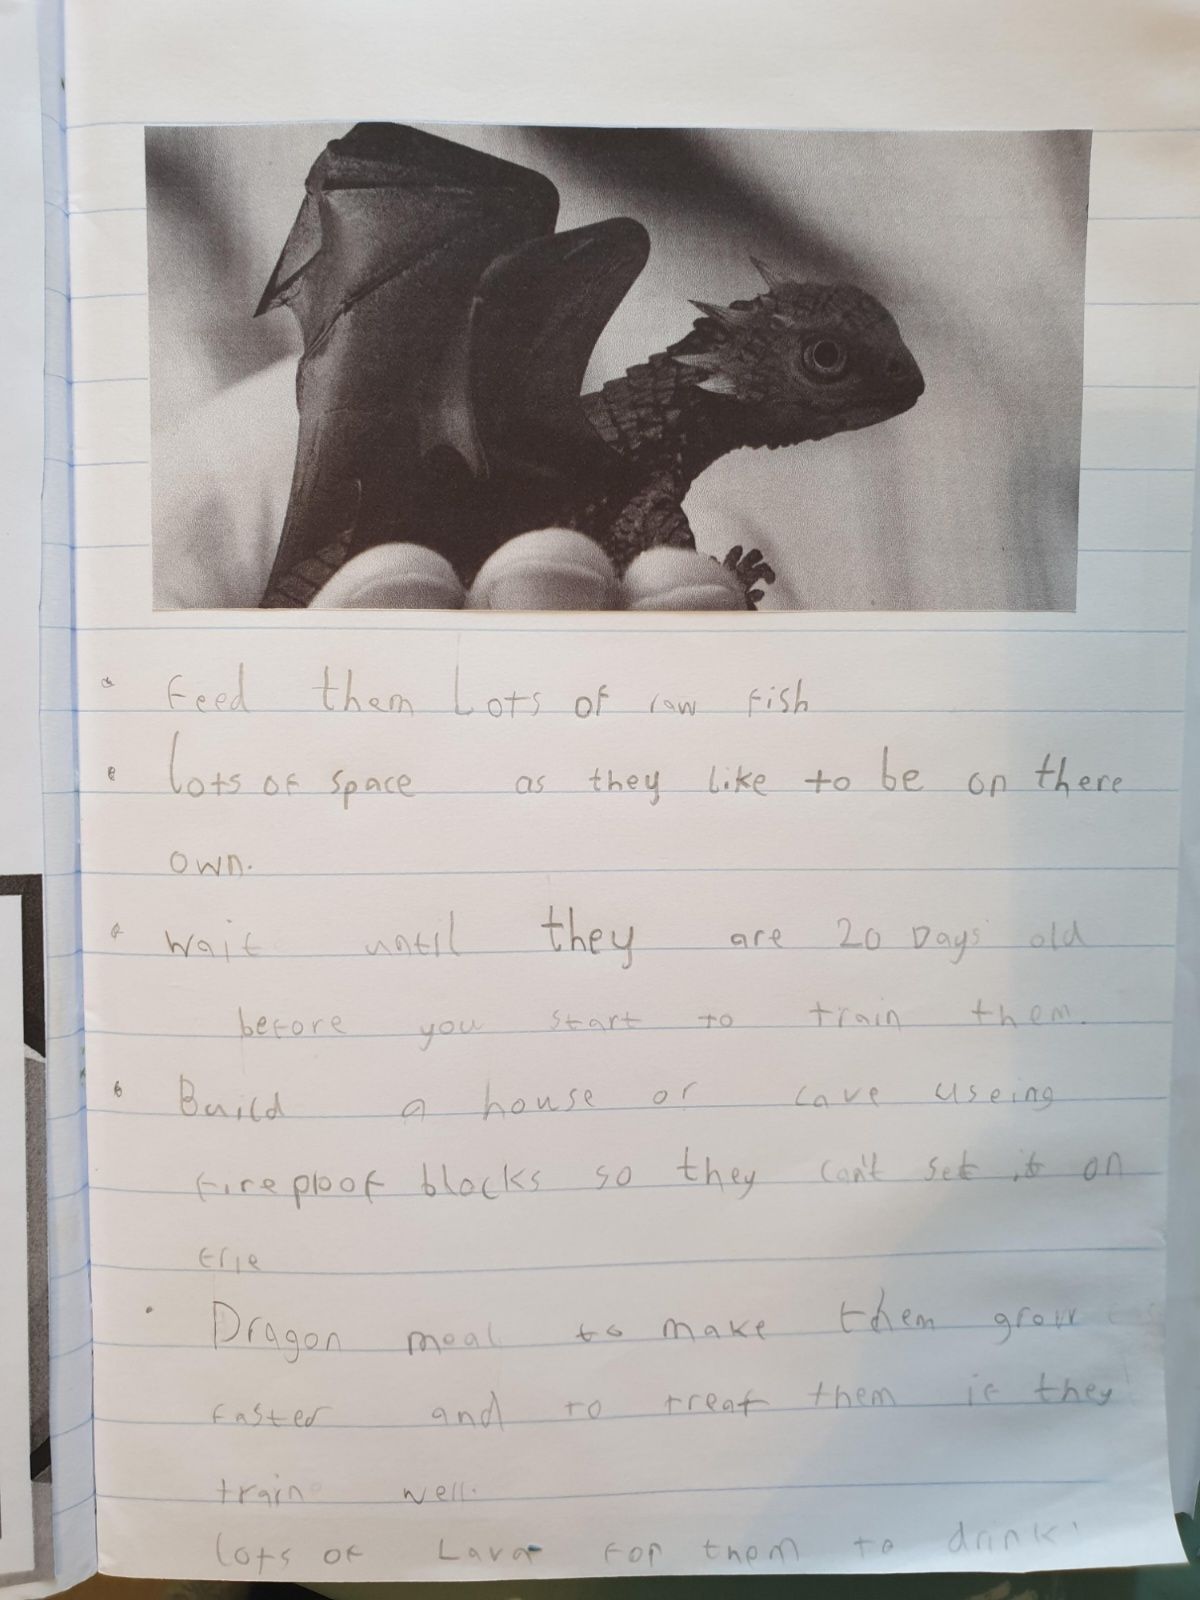 • Feed them Lots of raw fish
• Lots of space as they like to be on there
own.
• wait until they are 20 Days old
before you start to train them.
• Build a house or cave useing
fireploof blocks so they can't set it on
frie
• Dragon meal to make them grow
faster and to treat them if they
train well.
Lots of Lava for them to drink